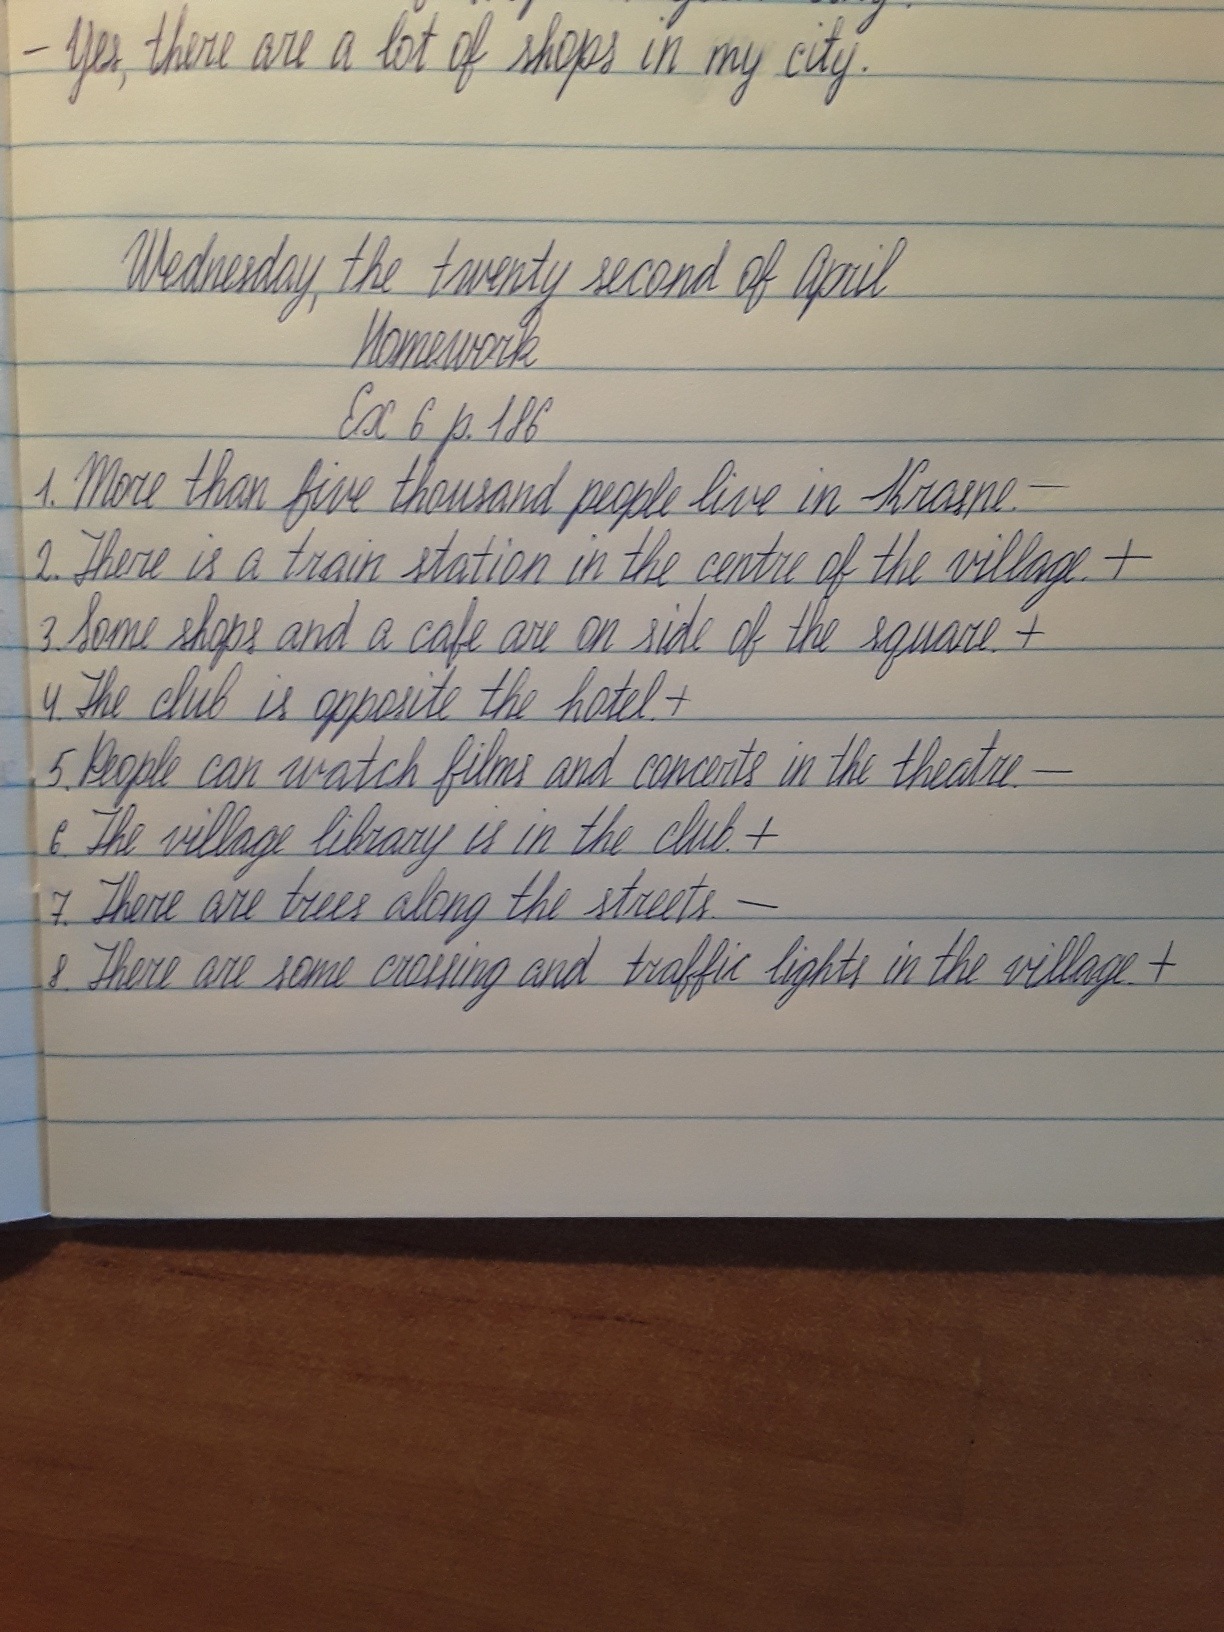 - Yes, there are a lot of shops in my city.
Wednesday, the twenty second of April
Homework
Ex 6 p. 186
1. More than five thousand people live in Krasne. -
2. There is a train station in the centre of the village. +
3. Some shops and a cafe are on side of the square. +
4. The club is opposite the hotel. +
5. People can watch films and concerts in the theatre. -
6. The village library is in the club. +
7. There are trees along the streets. -
8. There are some crossing and traffic lights in the village. +